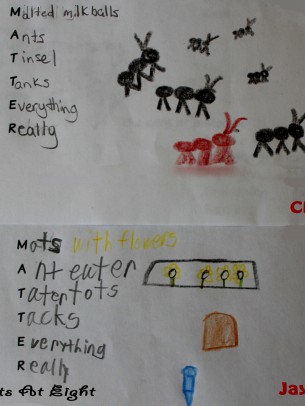 Malted milkballs
Ants
Tinsel
Tanks
Everything
Really
Mats with flowers
Ant eater
Tatertots
Tacks
Everything
Really